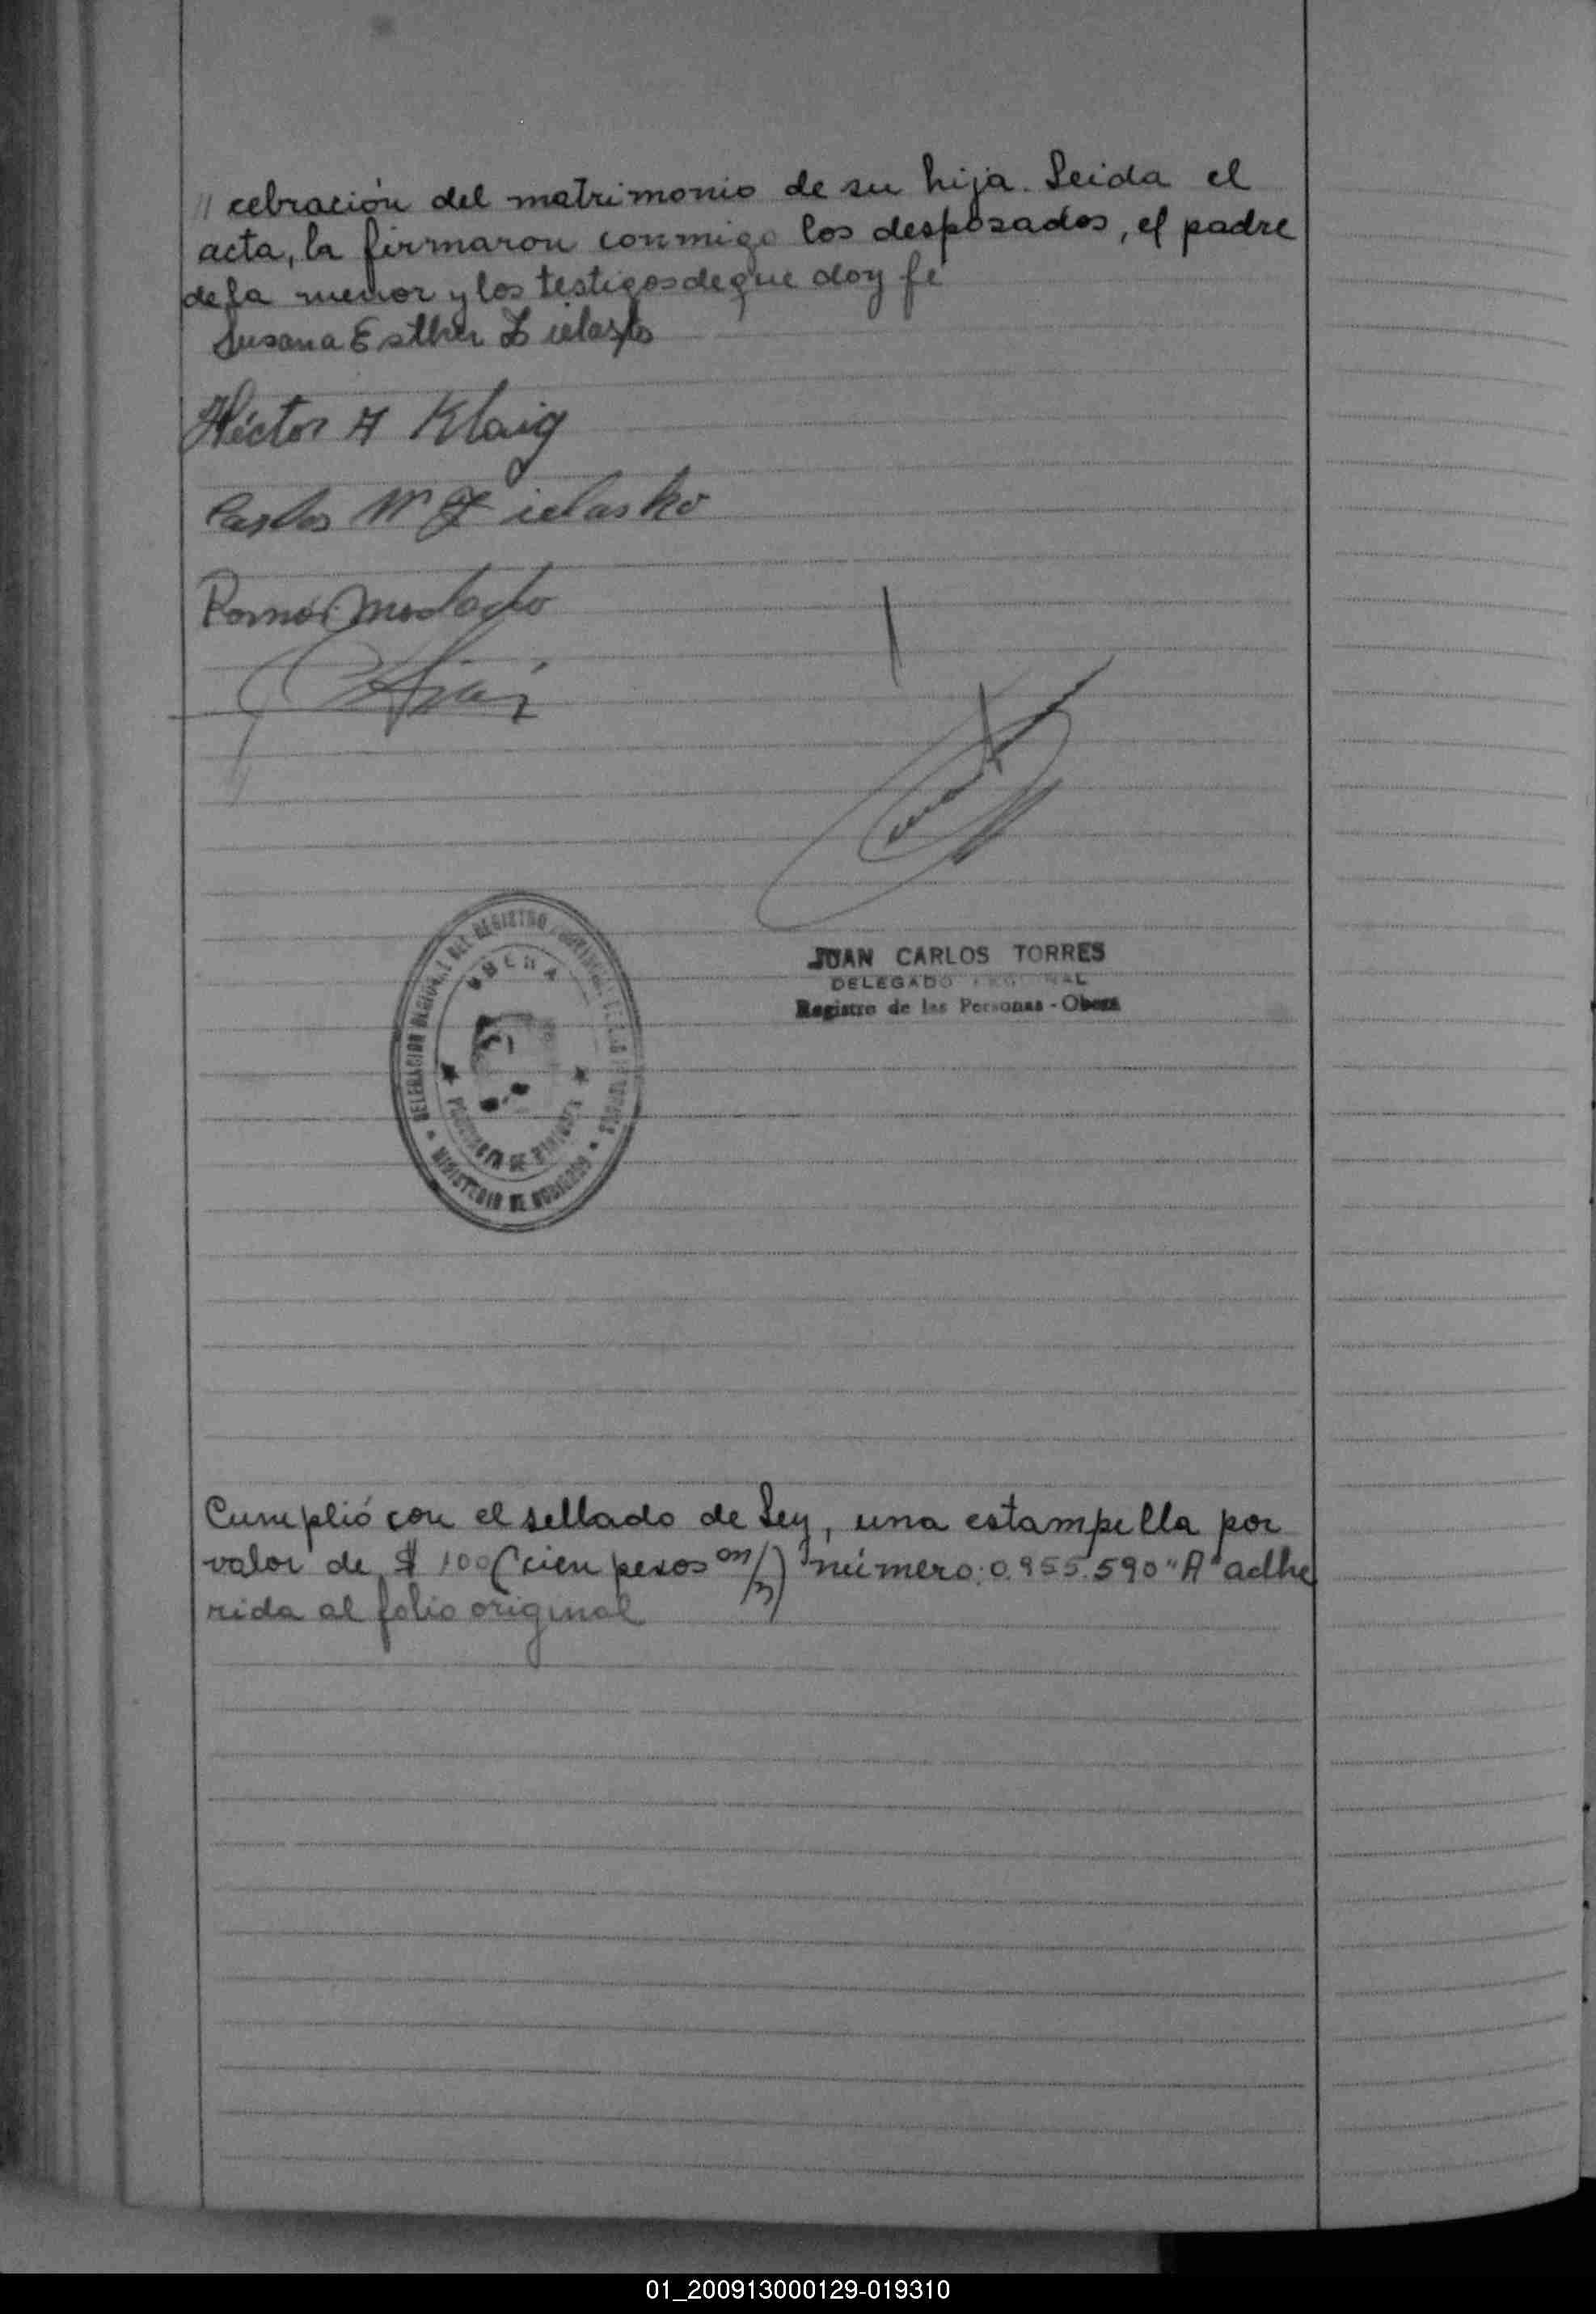 // cebración del matrimonio de su hija. Leida el
acta, la firmaron conmigo los desposados, el padre
de la menor y los testigos de que doy fe
Susana Esther Zielasko
Héctor A Klaig
Carlos M Zielasko
DELEGACION REGIONAL DEL REGISTRO PROVINCIAL DE LAS PERSONAS
OBERA
PROVINCIA DE MISIONES
MINISTERIO DE GOBIERNO
JUAN CARLOS TORRES
DELEGADO REGIONAL
Registro de las Personas - Obera
Cumplió con el sellado de Ley, una estampilla por
valor de $ 100 (cien pesos m/n) número: 0.955.590 "A" adhe
rida al folio original
01_200913000129-019310